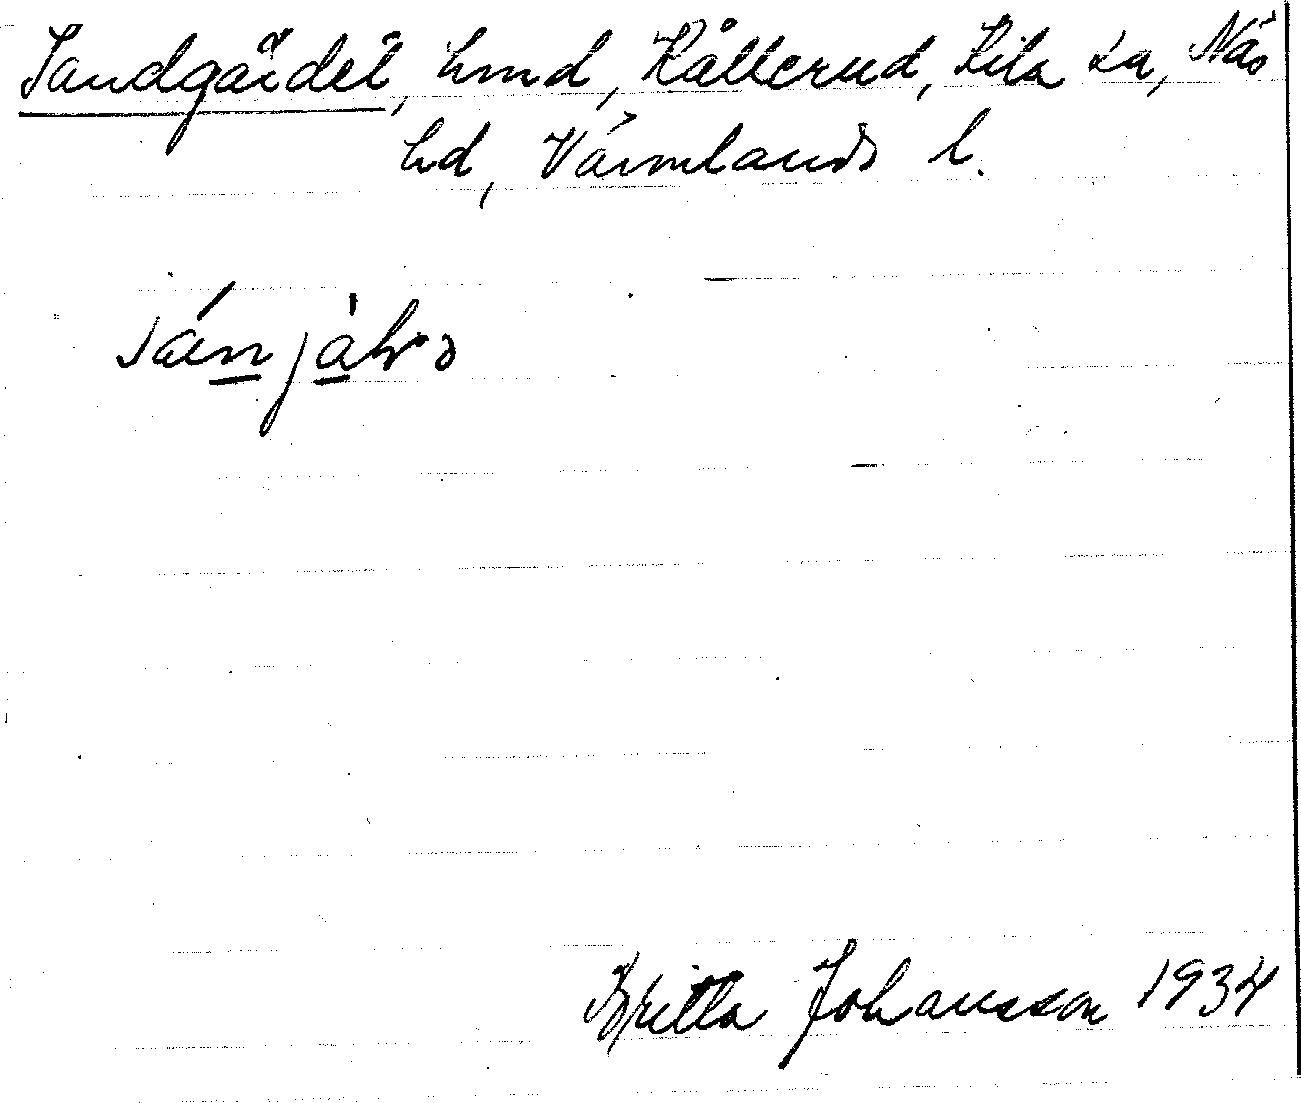 Sandgärdet, hmd, Kållerud, Kila sn, Näs
hd, Värmlands l.
Britta Johansson 1934